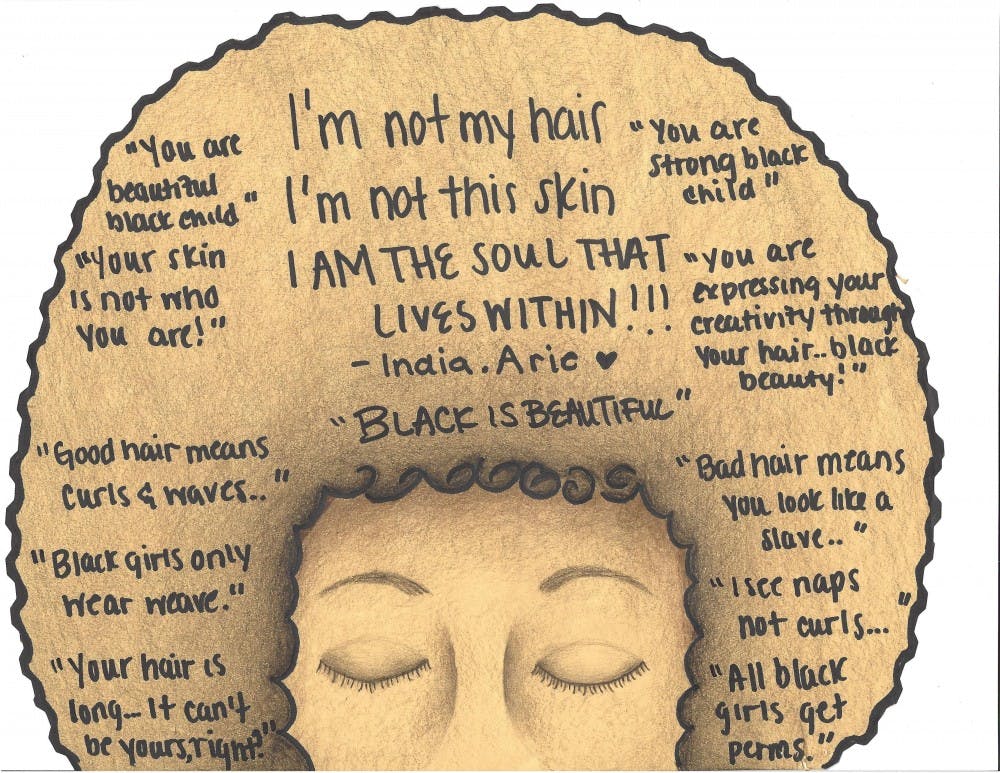 I'm not my hair
I'm not this skin
I AM THE SOUL THAT
LIVES WITHIN!!!
- India.Arie ♥
"BLACK IS BEAUTIFUL"
"You are
beautiful
black child"
"Your skin
is not who
you are!"
"Good hair means
curls & waves.."
"Black girls only
wear weave."
"Your hair is
long... It can't
be yours,right?"
"You are
strong black
child"
"You are
expressing your
creativity through
your hair..black
beauty!"
"Bad hair means
you look like a
slave.."
"I see naps
not curls..."
"All black
girls get
perms."